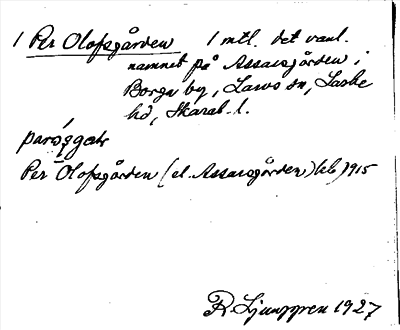 1 Per Olofsgården 1 mtl. det vanl.
namnet på Assarsgården i
Borga by, Lavos sn, Laske
hd, Skarab. l.
Per Olofsgården (el. Assarsgården) 1915
R. Ljunggren 1927